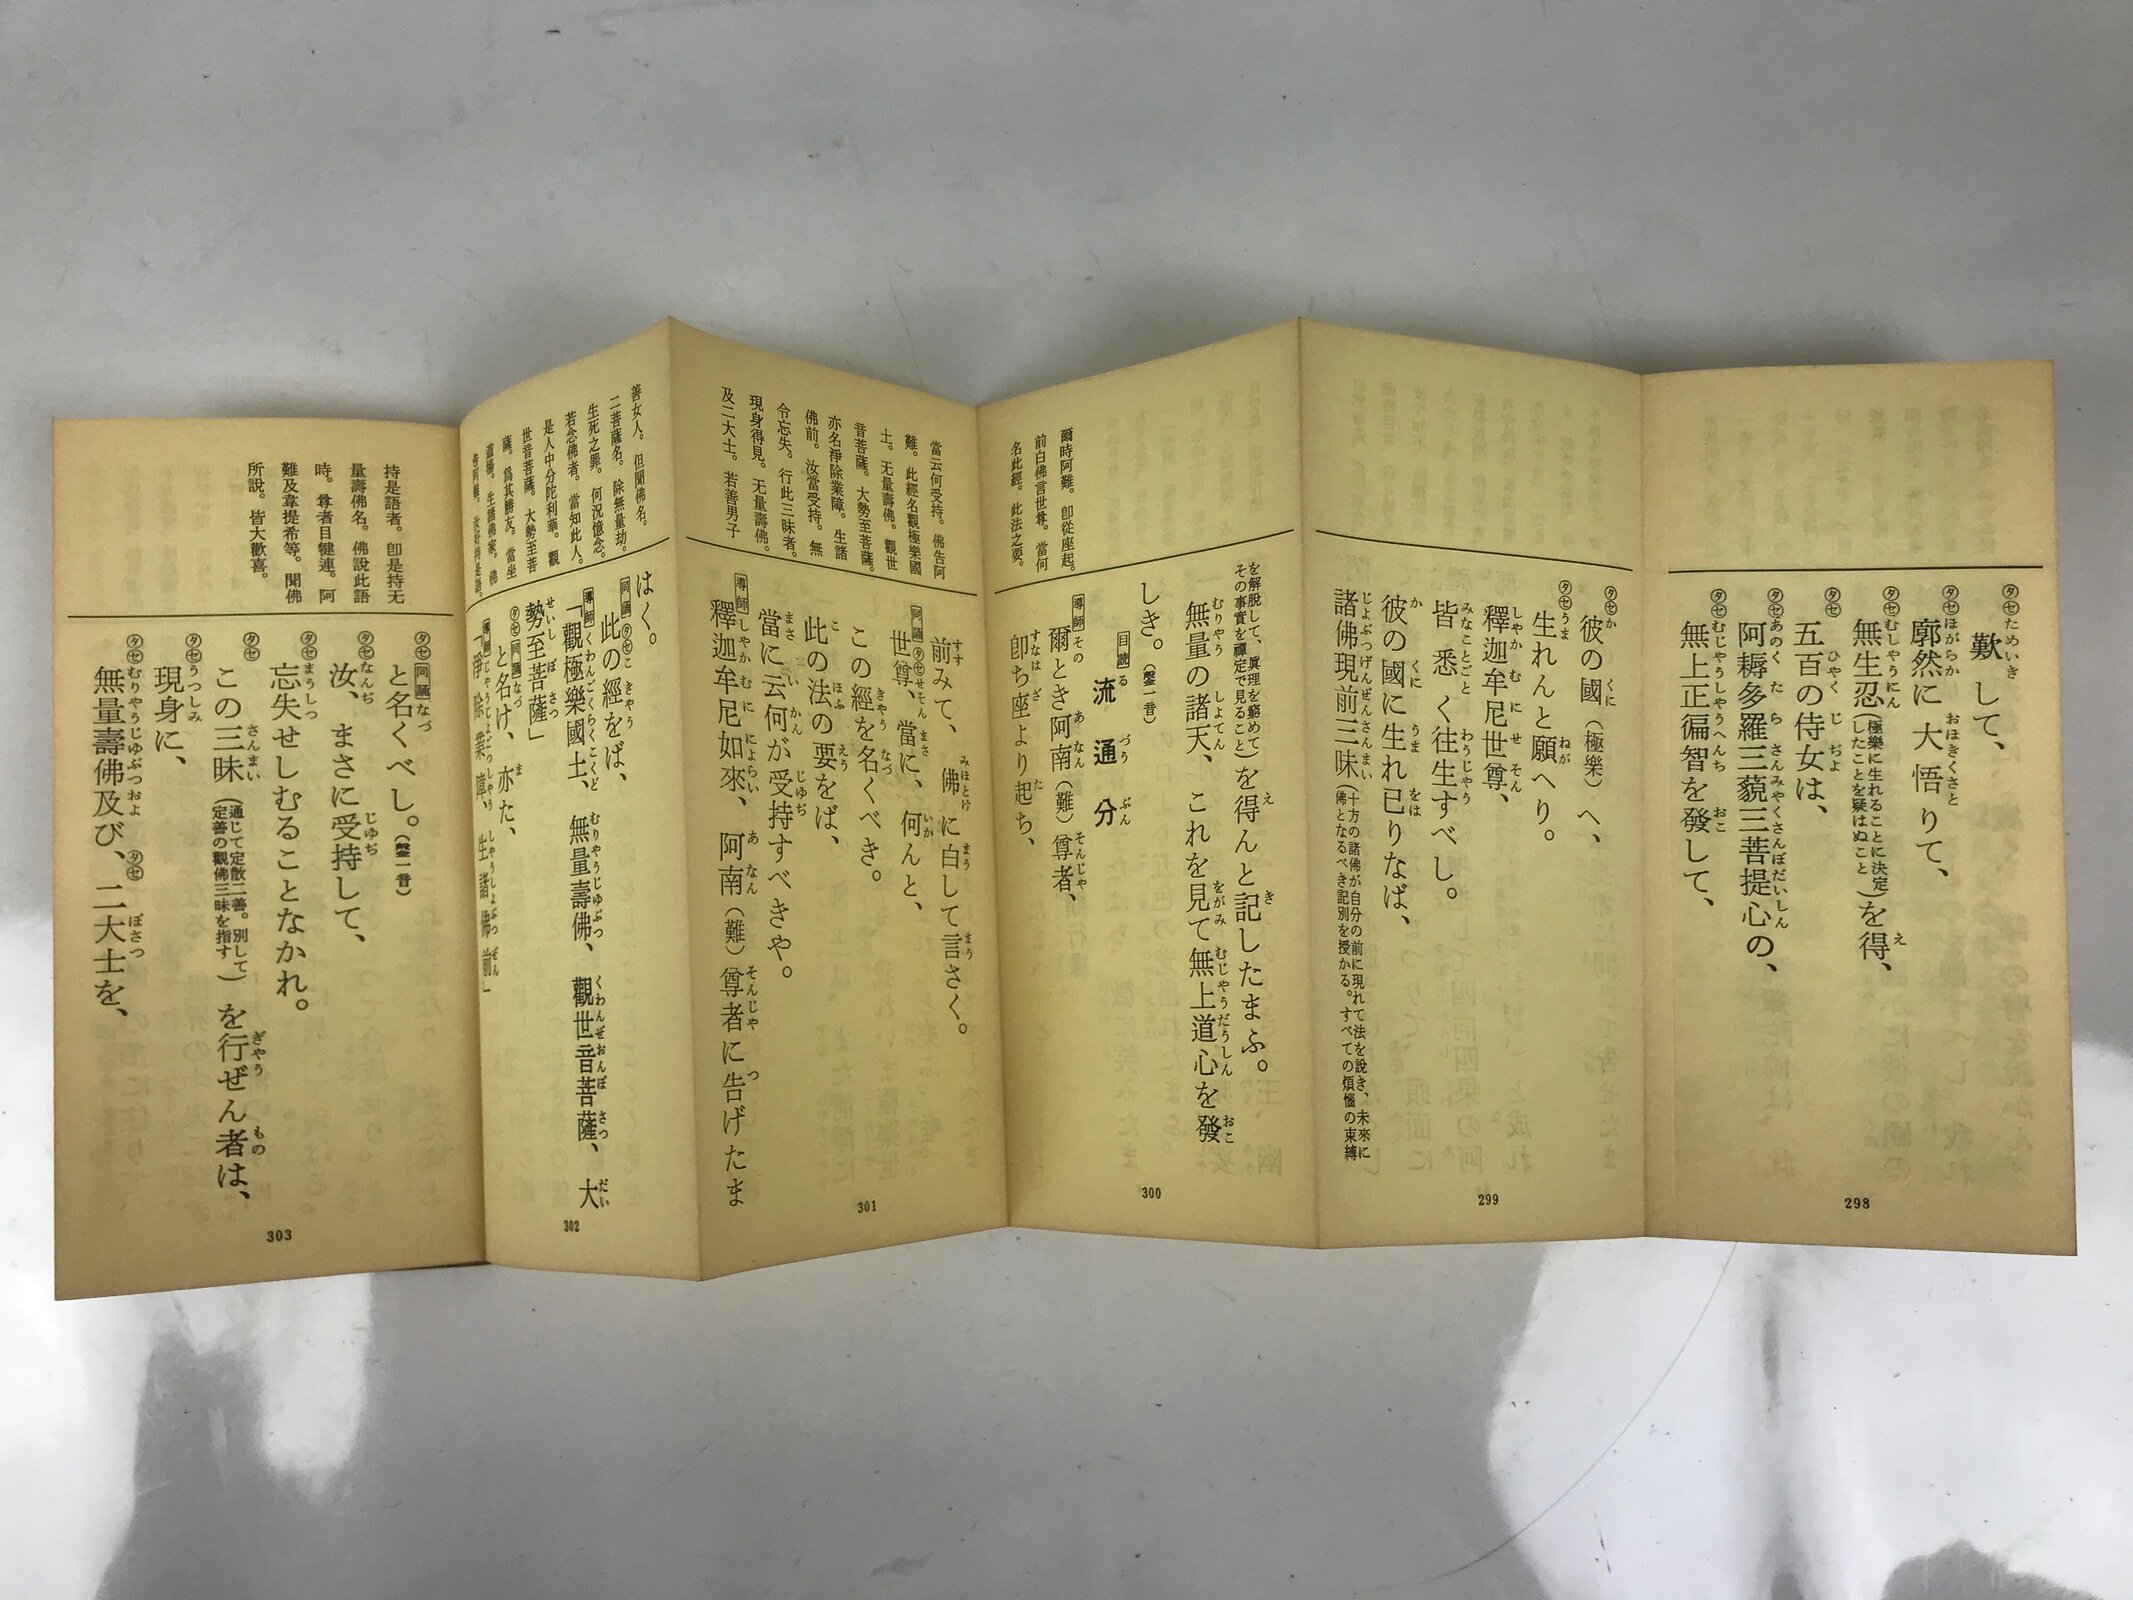 ㋟㋝歎して、
㋟㋝廓然に大悟りて、
㋟㋝無生忍(極樂に生れることに決定したことを疑はぬこと)を得、
㋟㋝五百の侍女は、
㋟㋝阿耨多羅三藐三菩提心の、
㋟㋝無上正徧智を發して、
298
㋟㋝彼の國(極樂)へ、
㋟㋝生れんと願へり。
釋迦牟尼世尊、
皆悉く往生すべし。
彼の國に生れ已りなば、
諸佛現前三昧(十方の諸佛が自分の前に現れて法を說き、未來に佛となるべき記別を授かる。すべての煩惱の束縛
299
爾時阿難。卽從座起。
前白佛言世尊。當何
名此經。此法之要。
を解脫して、眞理を窮めて
その事實を禪定で見ること)を得んと記したまふ。
無量の諸天、これを見て無上道心を發
しき。(磬一音)
目読 流通分
導師 爾とき阿南(難)尊者、
卽ち座より起ち、
300
當云何受持。佛告阿
難。此經名觀極樂國
土。无量壽佛。觀世
音菩薩。大勢至菩薩。
亦名淨除業障。生諸
佛前。汝當受持。無
令忘失。行此三昧者。
現身得見。无量壽佛。
及二大士。若善男子
前みて、佛に白して言さく。
同誦㋟㋝世尊、當に、何んと、
この經を名くべき。
此の法の要をば、
當に云何が受持すべきや。
導師 釋迦牟尼如來、阿南(難)尊者に告げたま
301
善女人。但聞佛名。
二菩薩名。除無量劫。
生死之罪。何況憶念。
若念佛者。當知此人。
是人中分陀利華。觀
世音菩薩。大勢至菩
薩。爲其勝友。當坐
道場。生諸佛家。佛
告阿難。汝好持是語。
はく。
同誦㋟㋝此の經をば、
導師「觀極樂國土、無量壽佛、觀世音菩薩、大
勢至菩薩」
㋟㋝同誦と名け、亦た、
導師「淨除業障、生諸佛前」
302
持是語者。卽是持无
量壽佛名。佛說此語
時。尊者目犍連。阿
難及韋提希等。聞佛
所說。皆大歡喜。
㋟㋝同誦と名くべし。(磬一音)
㋟㋝汝、まさに受持して、
㋟㋝忘失せしむることなかれ。
㋟㋝この三昧(通じて定散二善。別して定善の觀佛三昧を指す)を行ぜん者は、
㋟㋝現身に、
㋟㋝無量壽佛及び、㋟㋝二大士を、
303